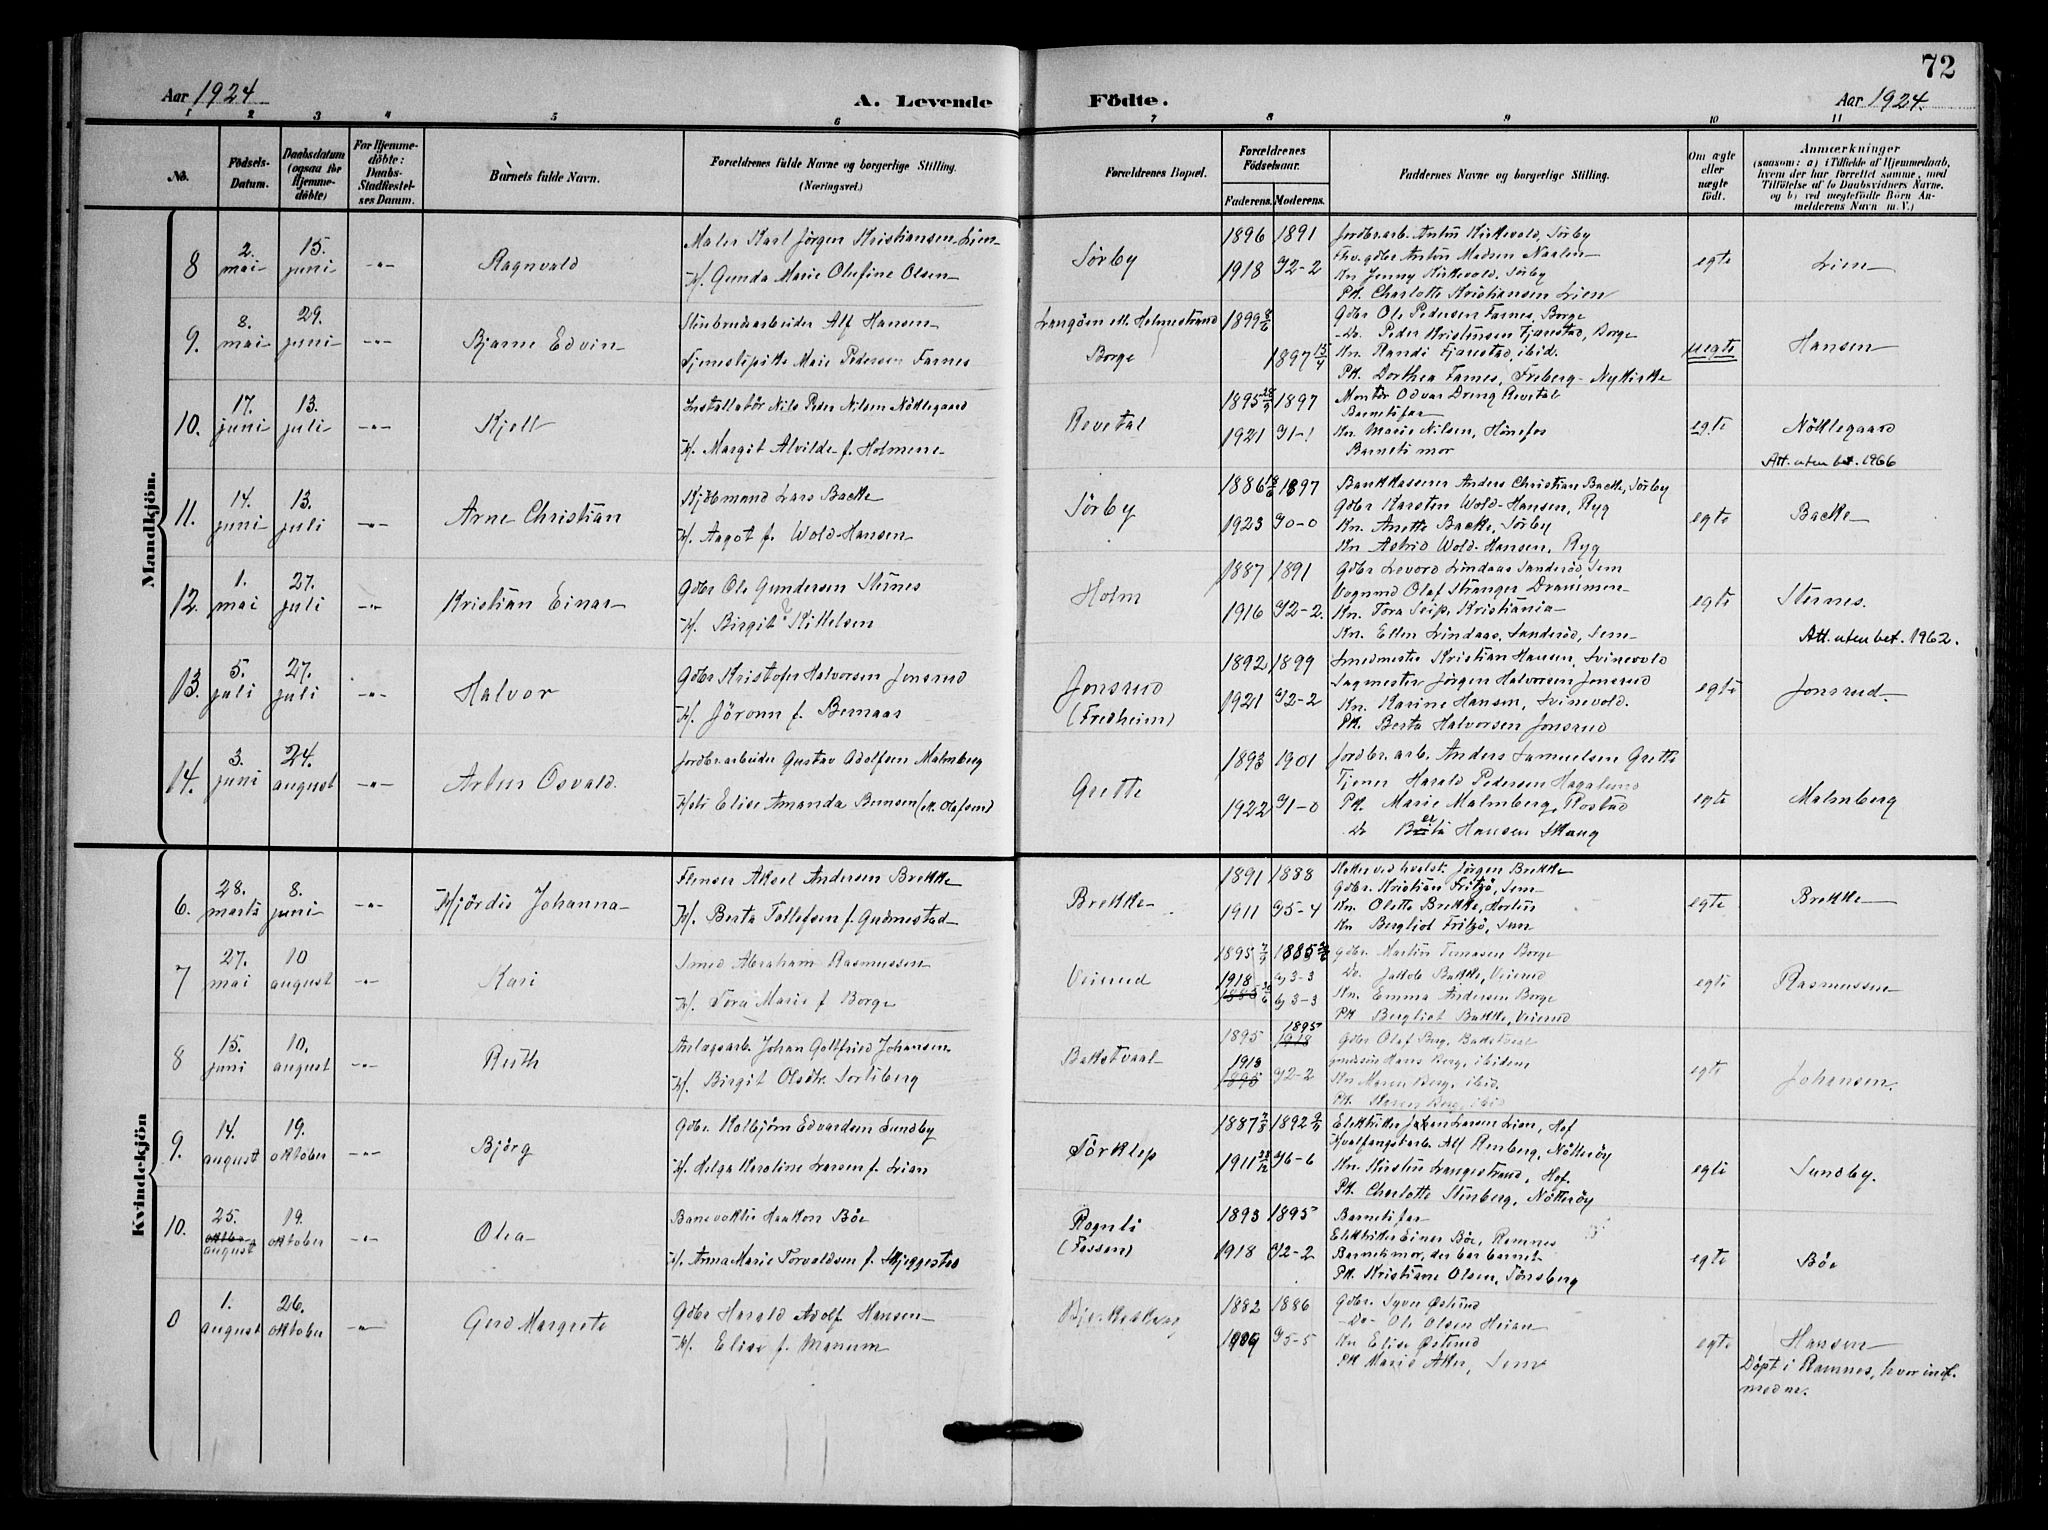 72
Aar 1924
A. Levende
Födte.
Aar 1924.
1 2 3 4 5 6 7 8 9 10 11
No.
Födsels-Datum.
Daabsdatum (ogsaa for Hjemmedöbte)
For Hjemmedöbte: Daabs-Stadfæstelses Datum.
Barnets fulde Navn.
Forældrenes fulde Navne og borgerlige Stilling.
(Næringsvei.)
Forældrenes Bopæl.
Forældrenes Födselsaar.
Faderens. Moderens.
Faddernes Navne og borgerlige Stilling.
Om ægte eller uægte födt.
Anmærkninger
(saasom: a) i Tilfælde af Hjemmedaab, hvem der har forrettet samme, med Tilföielse af to Daabsvidners Navne, og b) ved uegtefödte Börn Anmelderens Navn m. V.)
Mandkjön.
8 2. mai 15. juni -"- Ragnvald
Maler Karl Jörgen Kristiansen Lien
H/. Gunda Marie Olefine Olsen
Sörby
1896 1891
1918 G2-2
Jordbr.arb. Anton Kirkevold, Sörby
Fhv. gdbr Anton Madsen Naalen
Kn Jenny Kirkevold, Sörby
Pk. Charlotte Kristiansen Lien
egte
Lien
9. 8. mai 29. juni -"- Bjarne Edvin
Stenbrudarbeider Alf Hansen
Tjenestepike Marie Pedersen Farnes
Langöen pr. Holmestrand
Borge
1899
1897 15/4
Gdbr Ole Pedersen Farnes, Borge
Do. Peder Kristensen Fjærestad, Borge
Kn. Randi Fjærestad, ibid.
Pk. Dorthea Farnes, Freberg - Nykirke
uegte
Hansen
10. 17. juni 13. juli -"- Kjell
Installatör Nils Peder Nilsen Nöklegaard
H/. Margit Alvilde f. Holmene
Revetal
1895 1897
1921 G1-1
Montör Odvar Dreng Revetal
Barnets far
Kn. Marie Nilsen, Hönefos
Barnets mor
egte
Nöklegaard
Att. uten bet. 1966
11. 14. juni 13. juli -"- Arne Christian
Kjöbmand Lars Backe
H/. Aagot f. Wold-Hansen
Sörby
1886 1897
1923 G0-0
Bankkasserer Anders Christian Backe, Sörby
Gdbr Karsten Wold-Hansen, Ryg
Kn. Anette Backe, Sörby
Kn Astrid Wold-Hansen, Ryg
egte
Backe
12. 1. mai 27. juli -"- Kristian Einar
Gdbr Ole Gundersen Sternes
H/. Birgit Kittelsen
Holm
1887 1891
1916 G2-2.
Gdbr Levord Lindaas Sanderöd Sem
Vognmd Olaf Stranger Drammen
Kn. Tora Seip, Kristiania
Kn. Ellen Lindaas, Sanderöd, Sem
egte
Sternes.
Att. uten bet. 1962.
13. 5. juli 27. juli -"- Halvor
Gdbr Kristofer Halvorsen Jonsrud
H/. Jörann f. Bernaas
Jonsrud
(Fredheim)
1892 1899
1921 G2-2
Smedmester Kristian Hansen, Svinevold
Sagmester Jörgen Halvorsen Jonsrud
Kn. Karine Hansen, Svinevold.
Pk. Berta Halvorsen Jonsrud
egte
Jonsrud
14. 3. juni 24. august -"- Artur Osvald.
Jordbr.arbeider Gustav Adolfsen Malmberg
H/. Elise Amanda Bensen
Grette
1893 1901
1922 G1-0
Jordbr. arb. Anders Samuelsen Grette
Tjener Harald Pedersen Hagalund
Pk. Marie Malmberg, Rostad
Do Hansen Skaug
egte
Malmberg
Kvindekjön
6. 28. marts 8. juni -"- Hjördis Johanna
Flenser Aksel Andersen Brekke
H/. Berta Tollefsen f. Gudmestad
Brekke
1891 1888
1911 G5-4
Jörgen Brekke
Gdbr. Kristian Fritzö, Sem
Kn. Olette Brekke, Horten
Kn Bergliot Fritzö, Sem
egte
Brekke
7 27. mai 10 august -"- Kari
Smed Abraham Rasmussen
H/. Tora Marie f Borge
Veierud
1895 1885
1918 G3-3
1885 G3-3
gdbr. Martin Tomasen Borge
Do. Jakob Bakke, Veierud
Kn. Emma Andersen Borge
Pk Bergliot Bakke, Veierud
egte
Rasmussen
8 15. juni 10. august -"- Ruth
Anlægsarb. Johan Gottfried Johansen
H/. Birgit Olsdtr. Torlsberg
Bakstvaal
1895 1895 1918
1918 1895 G2-2
Gdbr Olaf Berg, Bakstvaal
Hans Berg, ibidem
Kn Maren Berg, ibid.
Pk. Berg, ibid
egte
Johansen.
9. 14. august 19. oktober -"- Björg
Gdbr. Kolbjörn Edvardsen Sundby
H/. Helga Karoline Larsen f. Lian
Törklep
1887 1892
1911 G6-6
Elektriker Larsen Lien, Hof
Hvalfangstarb. Alf Renberg, Nötteröy
Kn. Kirsten Langestrand, Hof.
Pk. Charlotte Stenberg, Nötteröy
egte
Sundby.
10. 25. oktbr. august 19. oktober -"- Olea
Banevokter Haakon Böe
H/. Anna Marie Torvaldsen f. Skjeggestad
Rognli
(Fossan)
1893 1895
1918 G2-2
Barnets far
Elektriker Einar Böe, Ramnes
Barnets mor, der bar barnet
Pk. Kristiane Olsen, Tönsberg
egte
Böe
0 1. august 26. oktober -"- Gerd Margrete
Gdbr Harald Adolf Hansen
H/. Elise f. Manum
1882 1886
1909 G5-5
Gdbr. Syver Östrud
-Do- Ole Olsen Heian
Kn Elise Östrud
Pk Marie Aker, Sem
egte
Hansen
Döpt i Ramnes, hvor indf.
med nr.